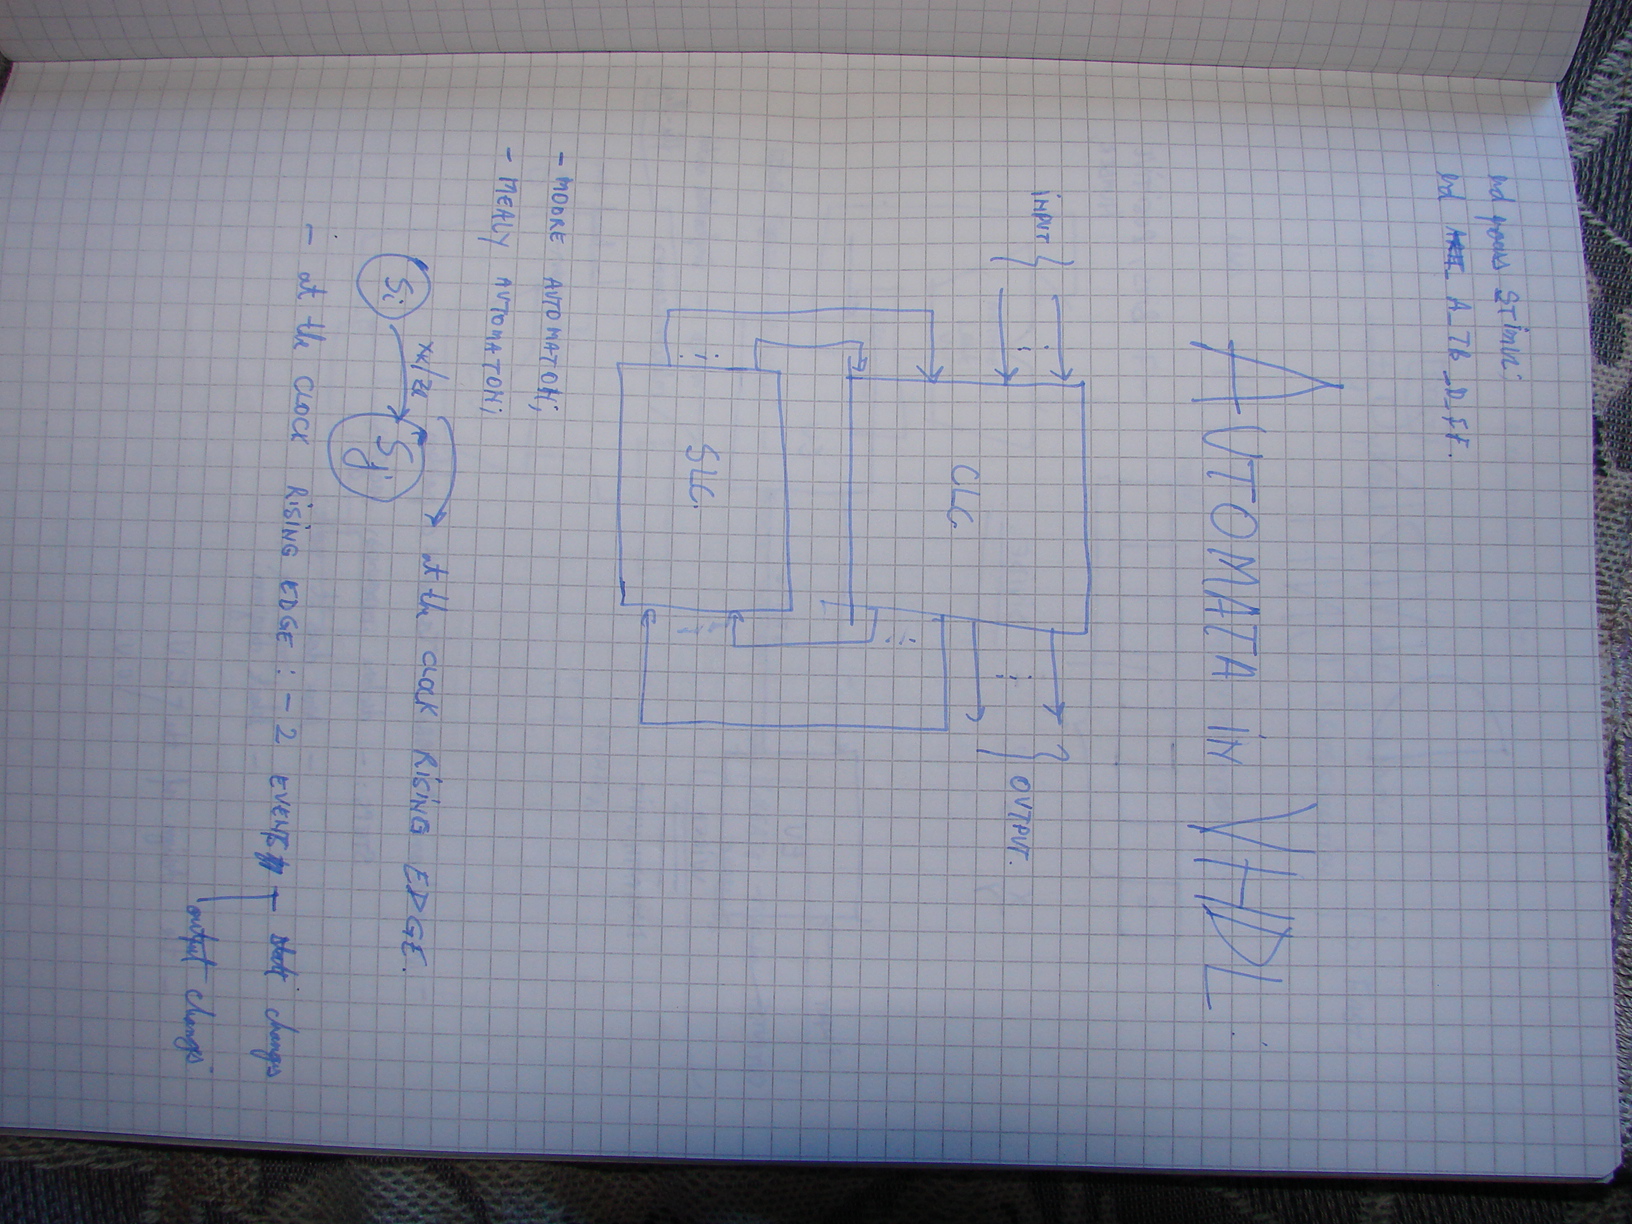 end process Stimuli;
end A_Tb_D_FF.
AUTOMATA IN VHDL.
INPUT
CLC
OUTPUT.
SLC.
- MOORE AUTOMATON;
- MEALY AUTOMATON;
Si xk/zk Sj at the CLOCK RISING EDGE.
- at the CLOCK RISING EDGE: - 2 EVENTS - state changes
output changes